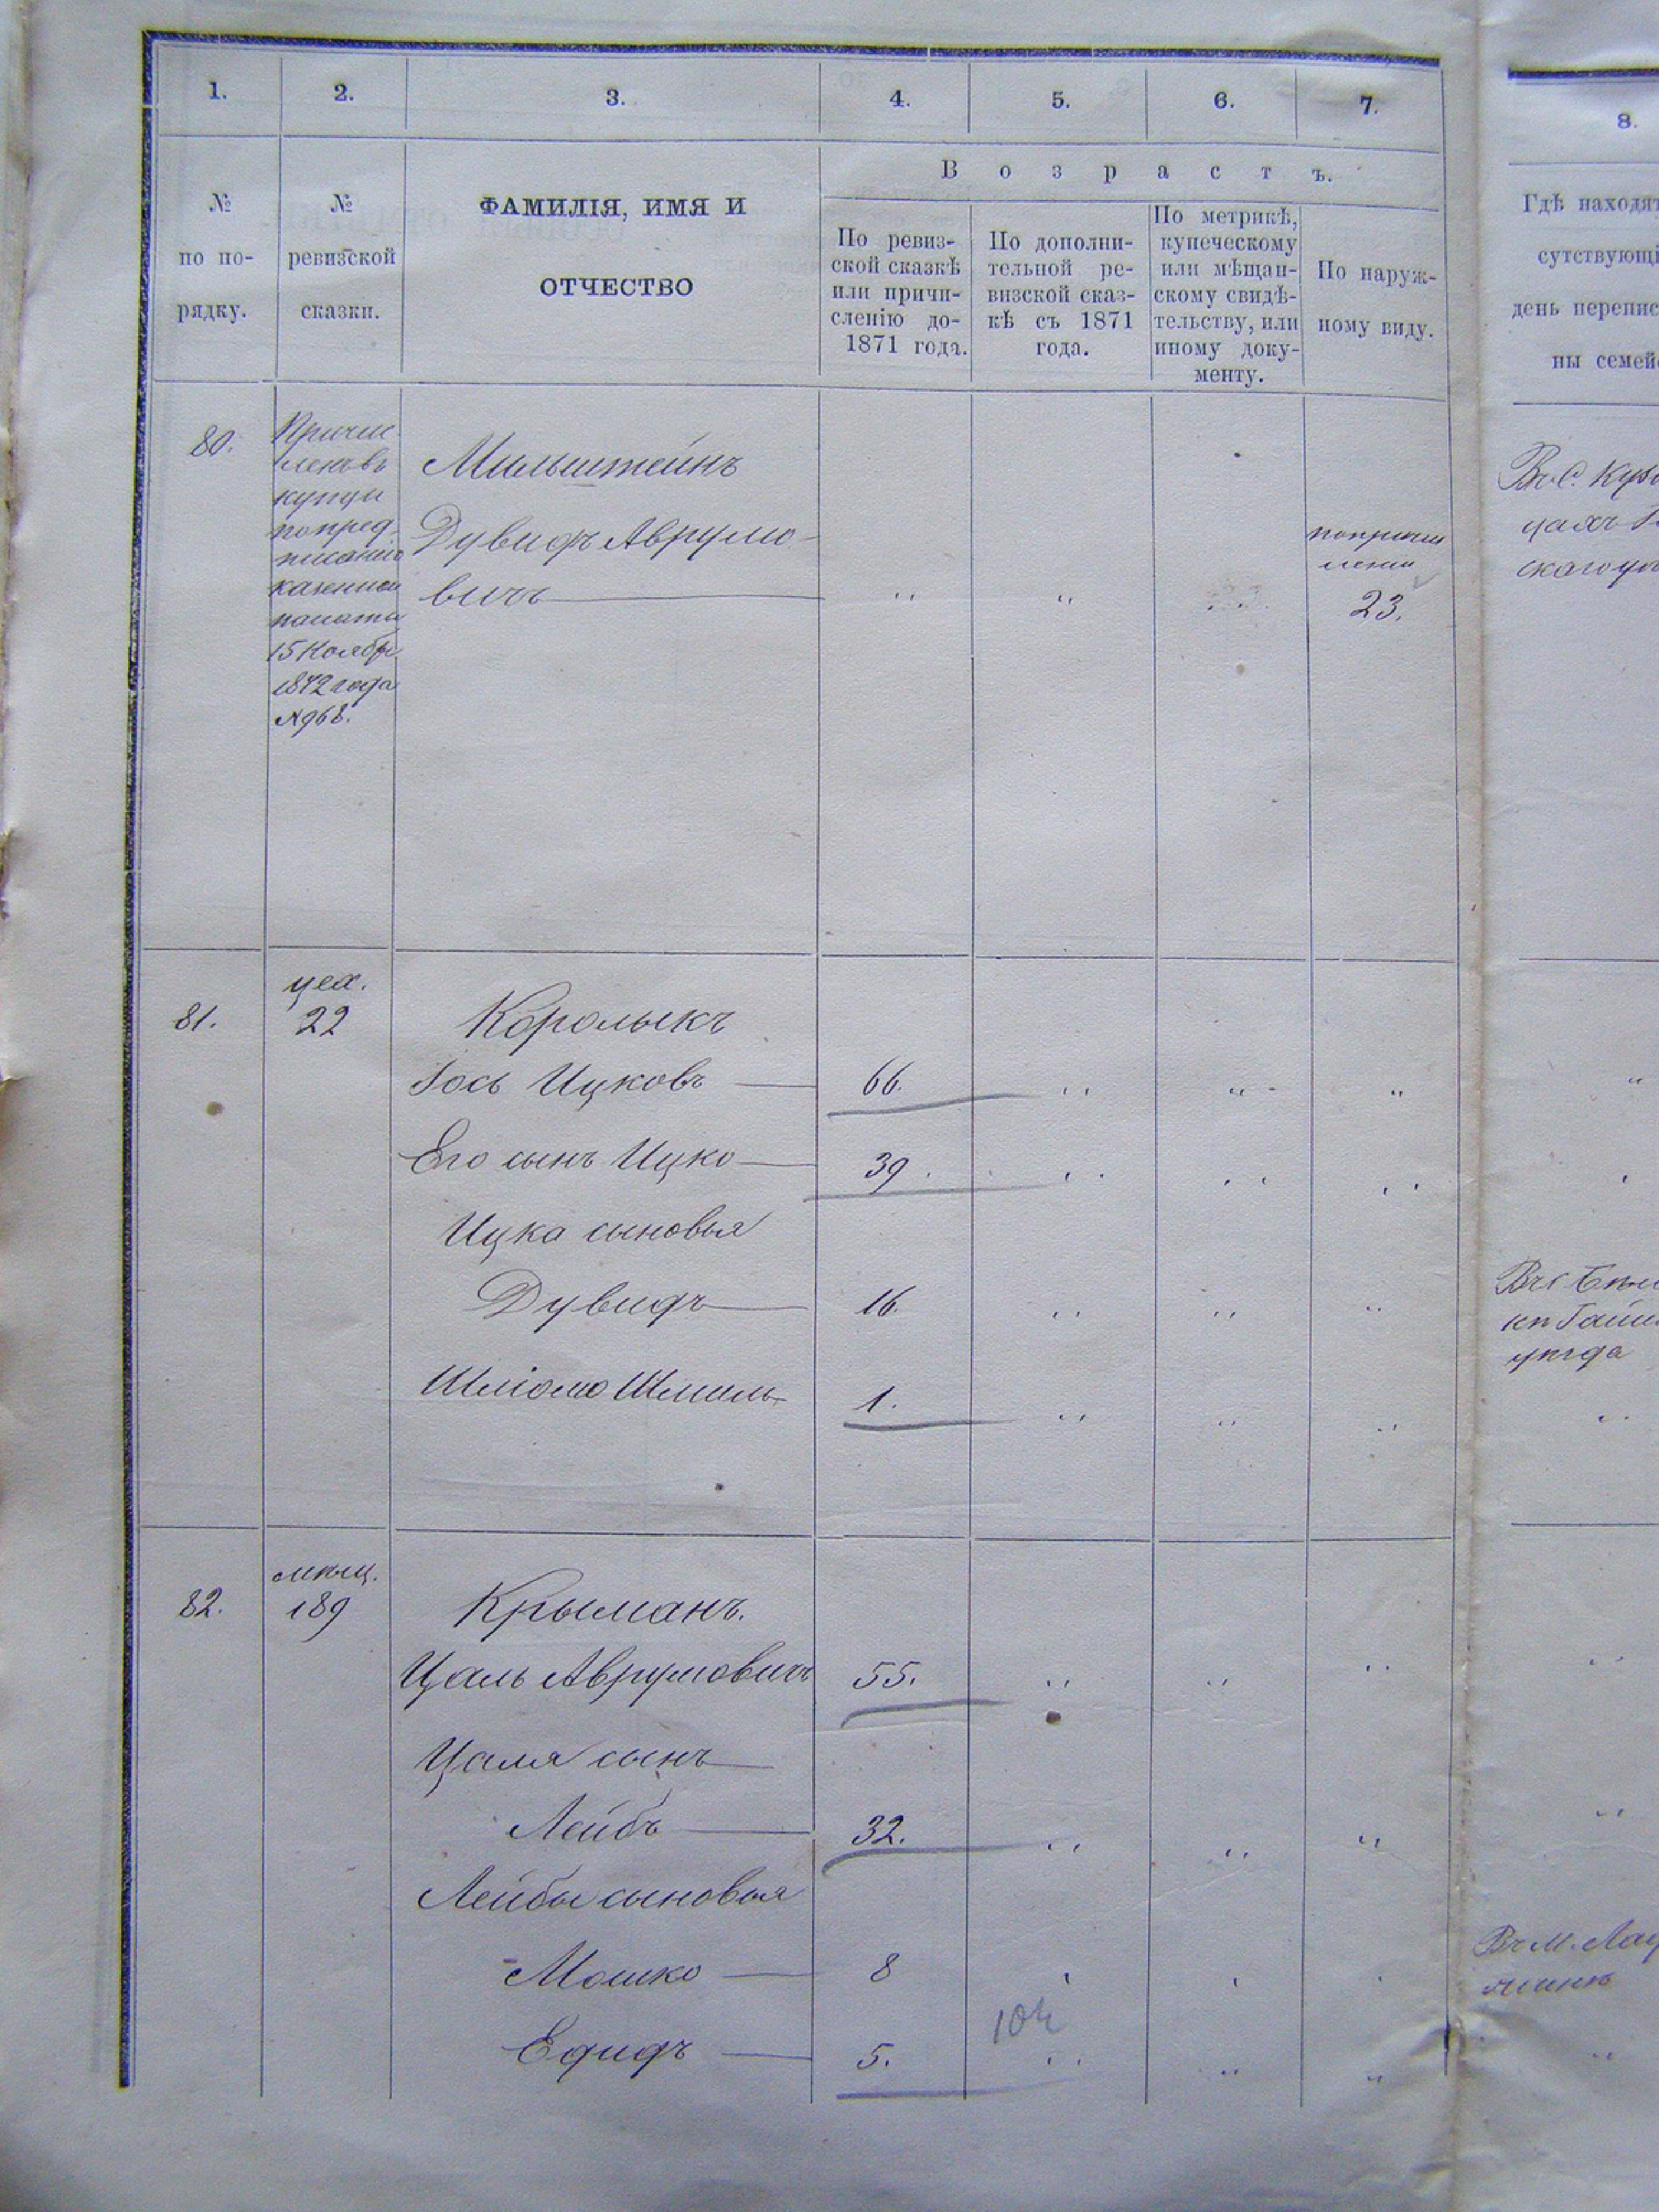 1. 2. 3. 4. 5. 6. 7. 8.
В о з р а с т ъ.
№ по по-рядку.
№ ревизской сказки.
ФАМИЛІЯ, ИМЯ И
ОТЧЕСТВО
По ревиз-
ской сказкѣ
или причи-
сленію до-
1871 года.
По дополни-
тельной ре-
визской сказ-
кѣ съ 1871
года.
По метрикѣ,
купеческому
или мѣщан-
скому свидѣ-
тельству, или
иному доку-
менту.
По наруж-
ному виду.
Гдѣ находят
сутствующі
день перепис
ны семей
80.
Причис
ленъ въ
купцы
по пред-
писанію
казенной
палаты
15 Ноября
1872 года
№968.
Мильштейнъ
Дувидъ Аврумо-
вичъ
по причис
лении
23.
Въ С.
81.
цех.
22
Королыкъ
Іось Ицковъ 66.
Его сынъ Ицко 39.
Ицка сыновья
Дувидъ 16.
Шліомо Шмиль 1.
уѣзда
82.
мѣщ.
189
Крыманъ.
Цаль Аврумовичъ 55.
Цаля сынъ
Лейбъ 32.
Лейбы сыновья
Мошко 8
Едидъ 5.
104
Въ м.